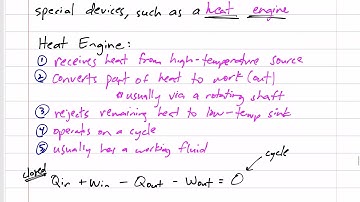 special devices, such as a heat engine
Heat Engine:
① receives heat from high-temperature source
② converts part of heat to work (out)
usually via a rotating shaft
③ rejects remaining heat to low-temp sink
④ operates on a cycle
⑤ usually has a working fluid
cycle
closed Qin + Win - Qout - Wout = 0